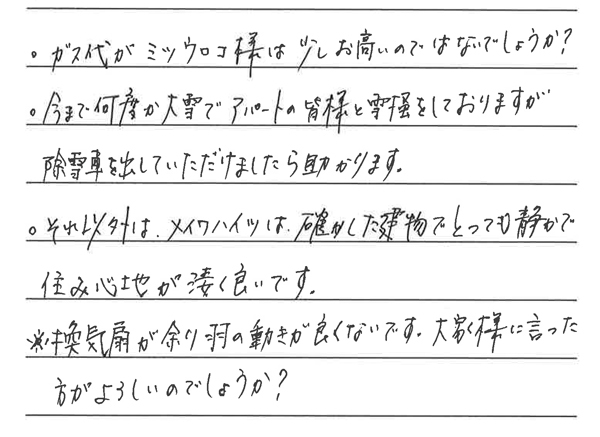 。ガス代がミツウロコ様は少しお高いのではないでしょうか?
。今まで何度か大雪でアパートの皆様と雪掻をしておりますが
除雪車を出していただけましたら助かります。
。それ以外は、メイワハイツは、確かした建物でとっても静かで
住み心地が凄く良いです。
※換気扇が余り羽の動きが良くないです。大家様に言った
方がよろしいのでしょうか?